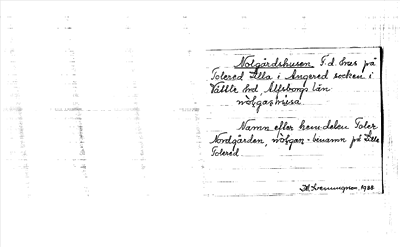 Nolgårdshusen F.d. bves på
Tolered Lilla i Angered socken i
Vättle hd Älfsborgs län.
nɷlgaʃhusa.
Namn efter hem.delen Toler.
Nordgården, nɷlgan - benämn. på Lilla
Tolered.
1928